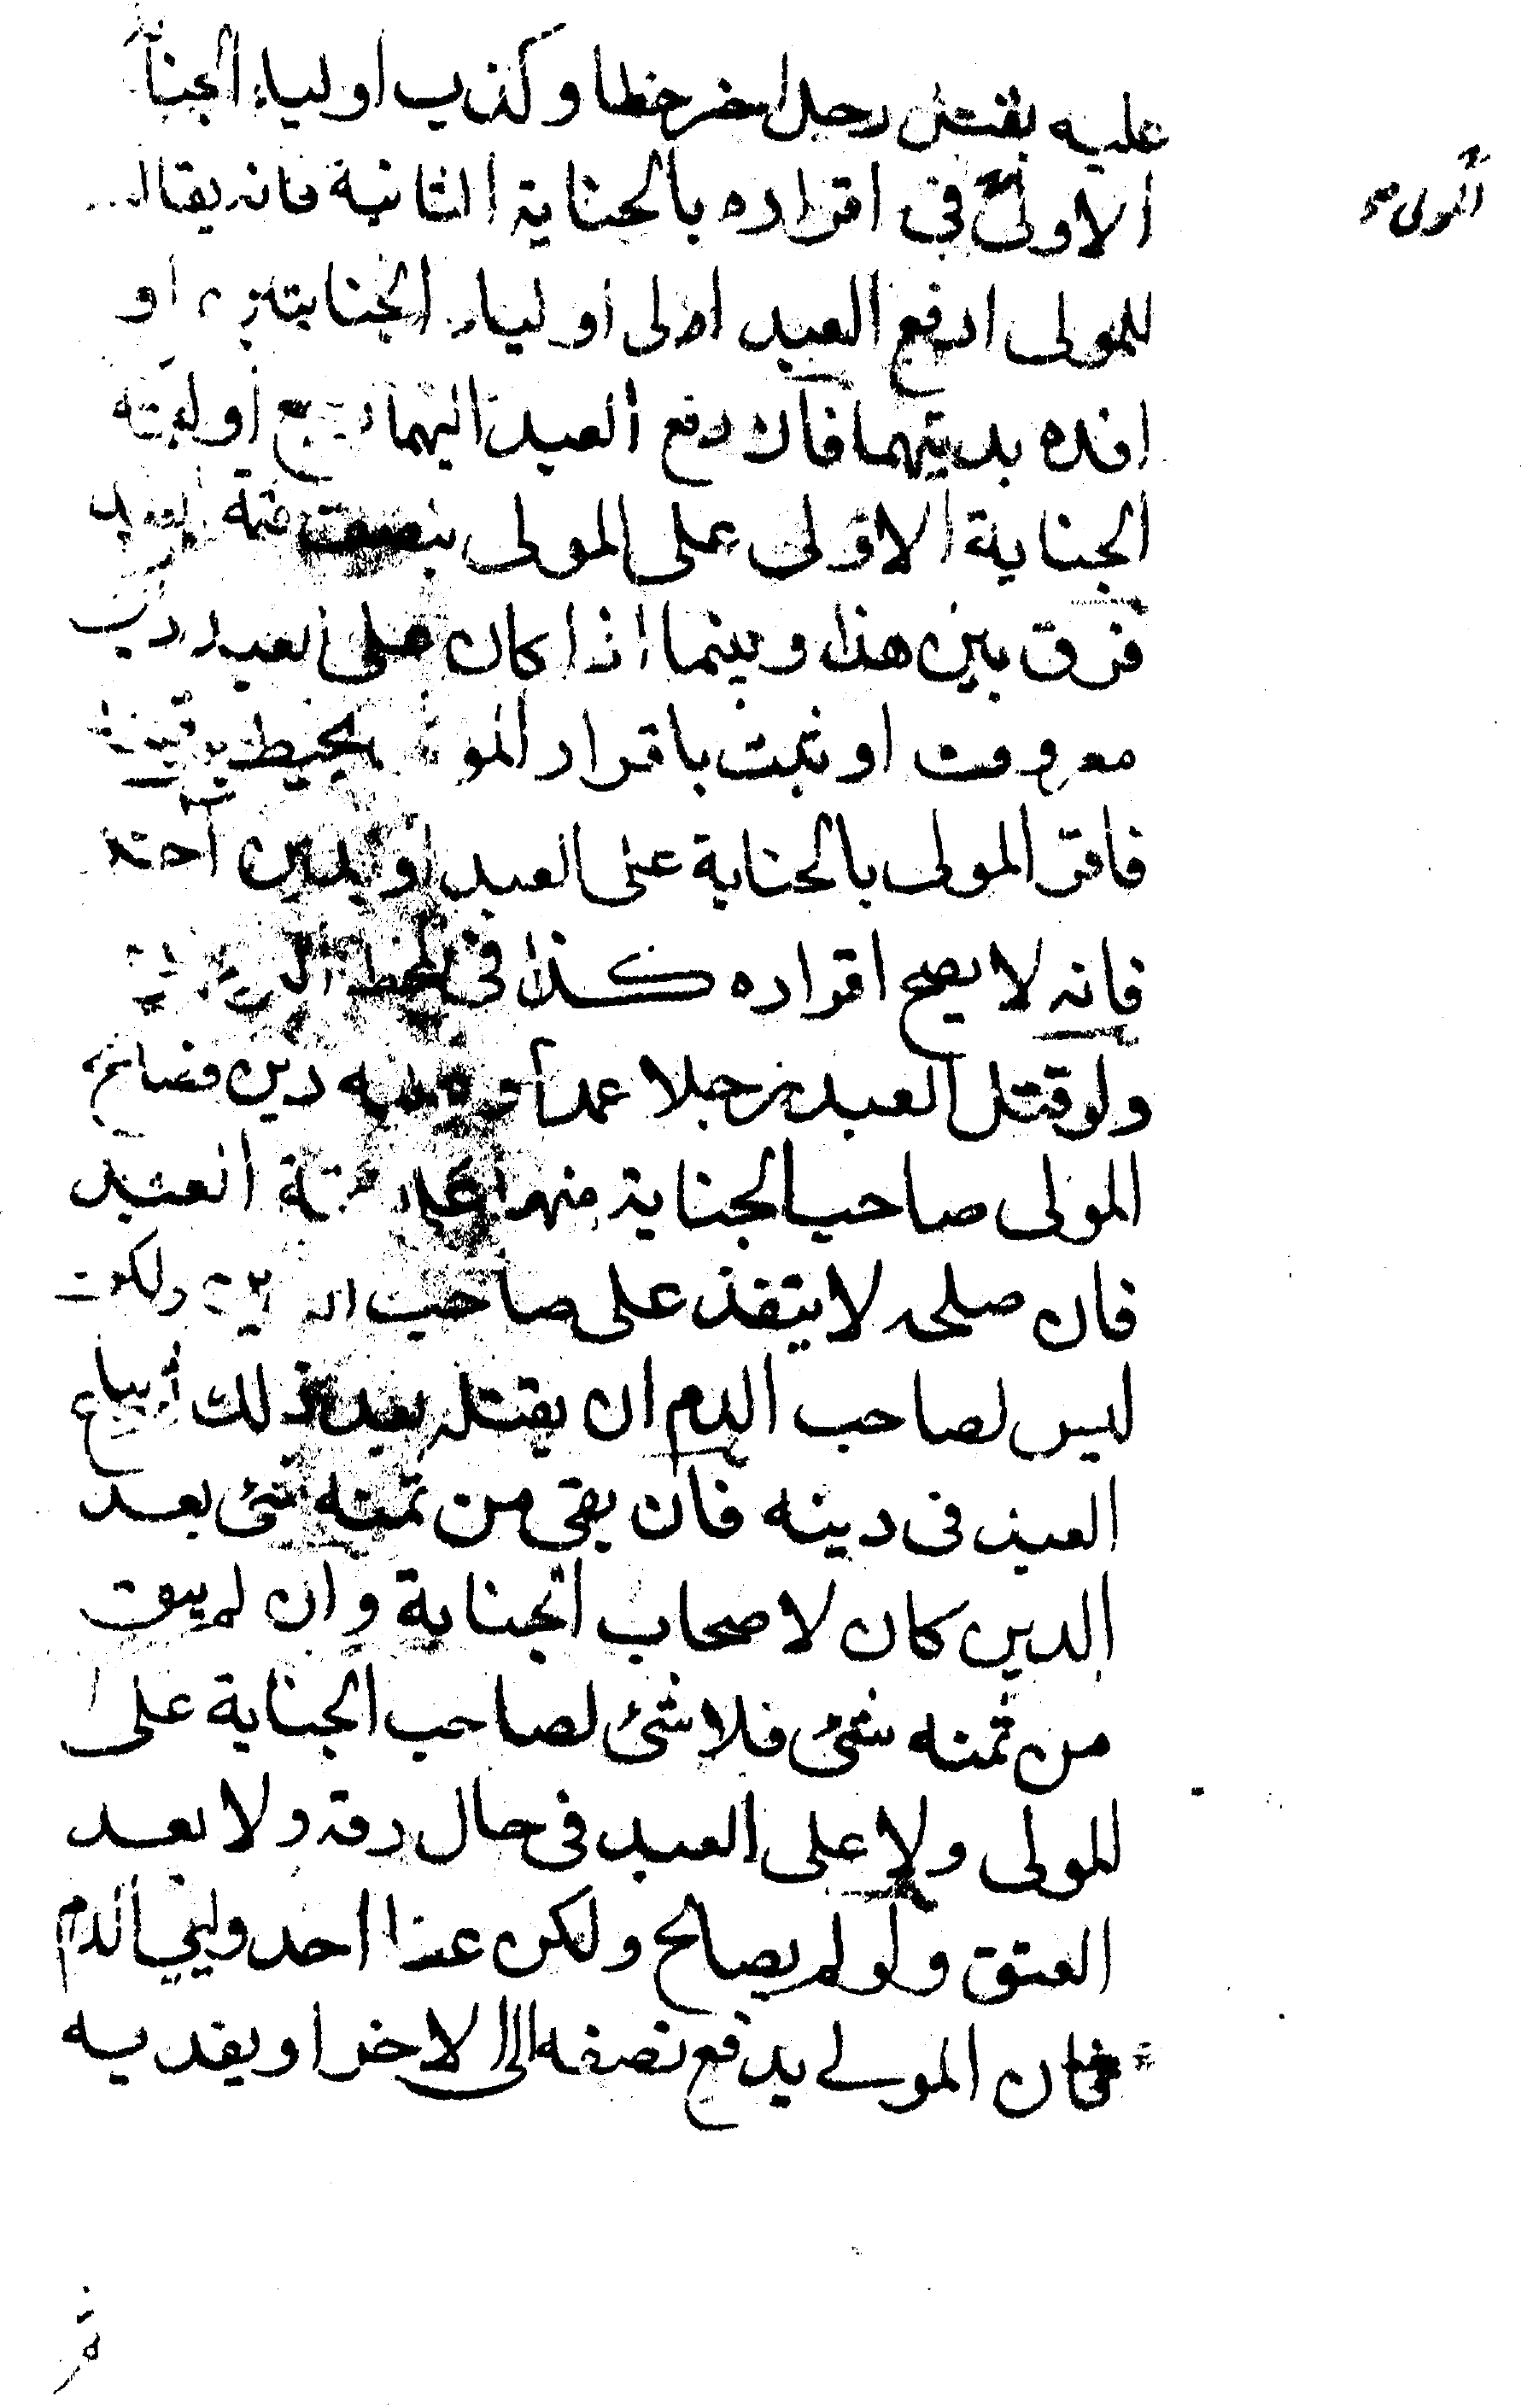 عليه بقتل رجل اخر خطا وكذب اولياء الجنا
الاولى في اقراره بالجناية الثانية فانه يقال
المولى صح
للمولى ادفع العبد الى اولياء الجنايتين او
افده بديتهما فان دفع العبد اليهما
الجناية الاولى على المولى بنصف قيمة العبد
فرق بين هذا وبينما اذا كان على العبد دين
معروف او ثبت باقرار المو يحيط برقبته
فاقر المولى بالجناية على العبد او بدين آخر
فانه لا يصح اقراره كذا في المحيط
ولو قتل العبد رجلا عمدا وعليه دين فصالح
المولى صاحب الجناية منهما على العبد
فان صلحه لا ينفذ على صاحب ولكن
ليس لصاحب الدم ان يقتله بعد ذلك يباع
العبد في دينه فان بقي من ثمنه شئ بعد
الدين كان لاصحاب الجناية وان لم يبق
من ثمنه شئ فلا شئ لصاحب الجناية على ا
للمولى ولا على العبد في حال رقه ولا بعد
العتق ولو لم يصالح ولكن عفا احد وليي الدم
فان المولى يدفع نصفه الى الاخر او يفديه